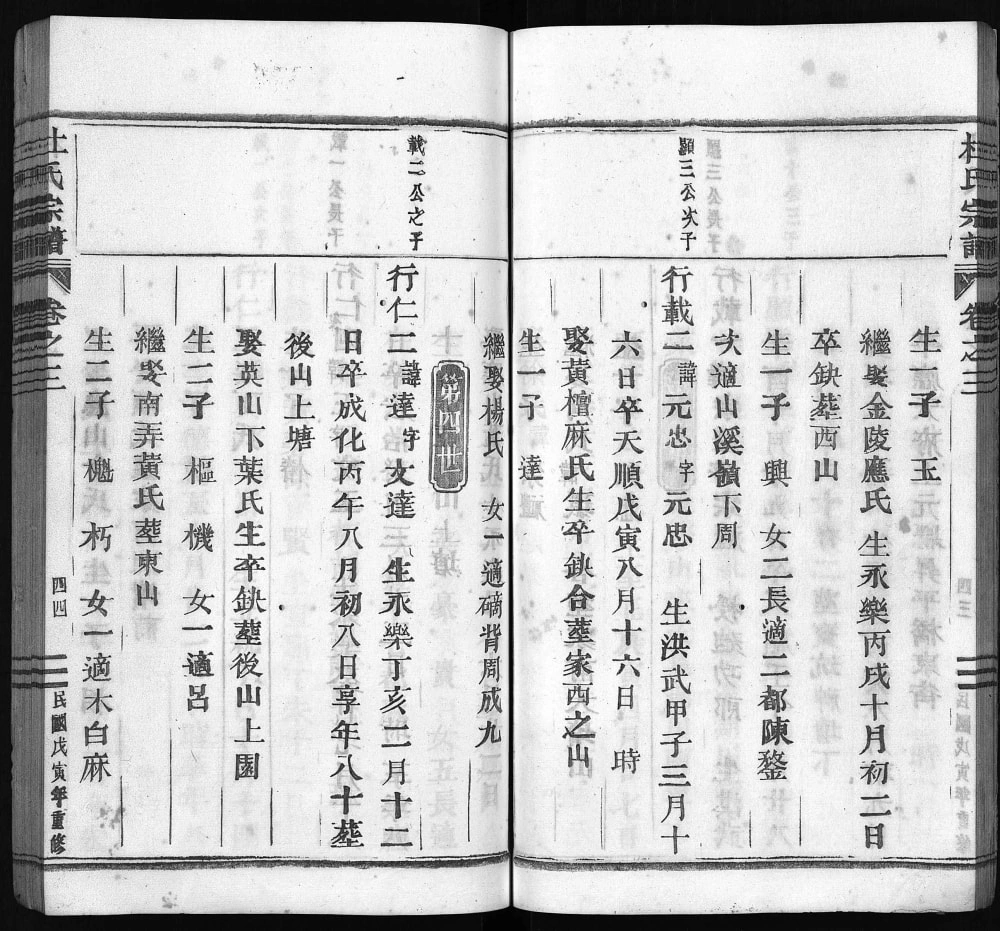 杜氏宗譜 卷之三
生一子玉
繼娶金陵應氏 生永樂丙戌十月初二日
卒缺塟西山
生一子興 女二長適二都陳鍪
次適山溪嶺下周
顯三公次子
行載二諱元忠字元忠 生洪武甲子三月十
六日卒天順戊寅八月十六日 時
娶黃檀麻氏生卒缺合塟家西之山
生一子達
四三 民國戊寅年重修
繼娶楊氏 女一適碲背周成九
第四世
載二公之子
行仁二諱達字友達三 生永樂丁亥二月十二
日卒成化丙午八月初八日享年八十塟
後山上塘
娶英山下葉氏生卒缺塟後山上園
生二子樞機 女一適呂
繼娶南弄黃氏塟東山
生二子櫆朽女一適木白麻
杜氏宗譜 卷之三
四四 民國戊寅年重修